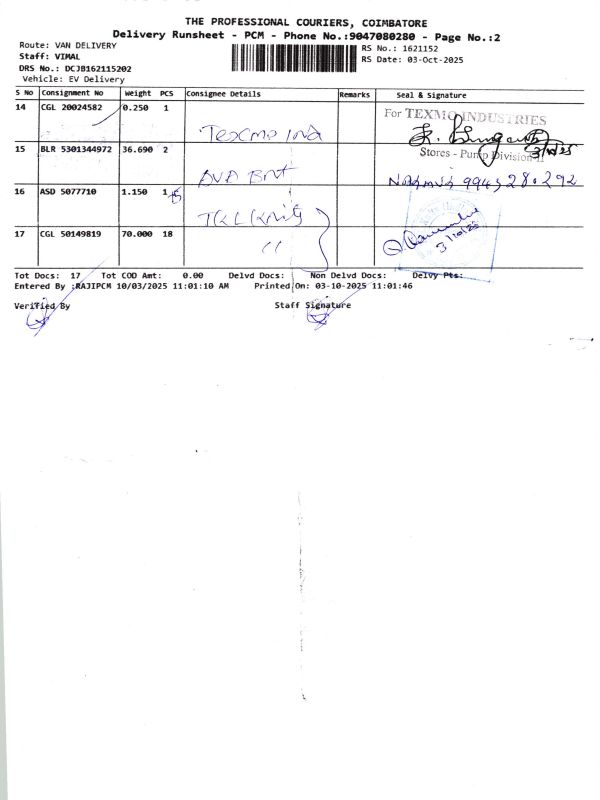 THE PROFESSIONAL COURIERS, COIMBATORE
Delivery Runsheet - PCM - Phone No.:9047080280 - Page No.:2
Route: VAN DELIVERY
Staff: VIMAL
DRS No.: DCJB162115202
Vehicle: EV Delivery
RS No.: 1621152
RS Date: 03-Oct-2025
S No Consignment No Weight PCS Consignee Details Remarks Seal & Signature
14 CGL 20024582 0.250 1
For TEXMO INDUSTRIES
Texmo Ind
Stores - Pump Division
15 BLR 5301344972 36.690 2
99943 28.292
16 ASD 5077710 1.150 1
17 CGL 50149819 70.000 18
3/10/25
Tot Docs: 17 Tot COD Amt: 0.00 Delvd Docs: Non Delvd Docs: Delvy Pts:
Entered By :RAJIPCM 10/03/2025 11:01:10 AM Printed On: 03-10-2025 11:01:46
Verified By Staff Signature